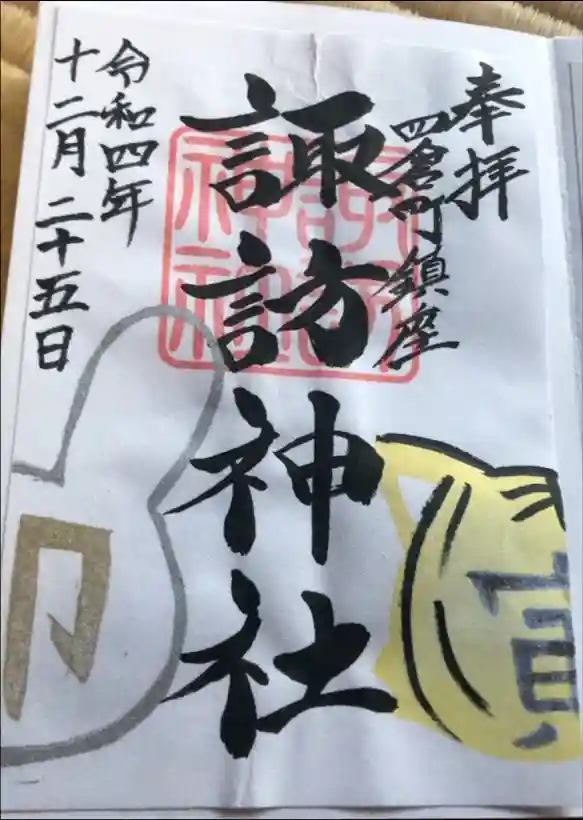 奉拝
四倉町鎮座
諏訪神社
令和四年
十二月二十五日